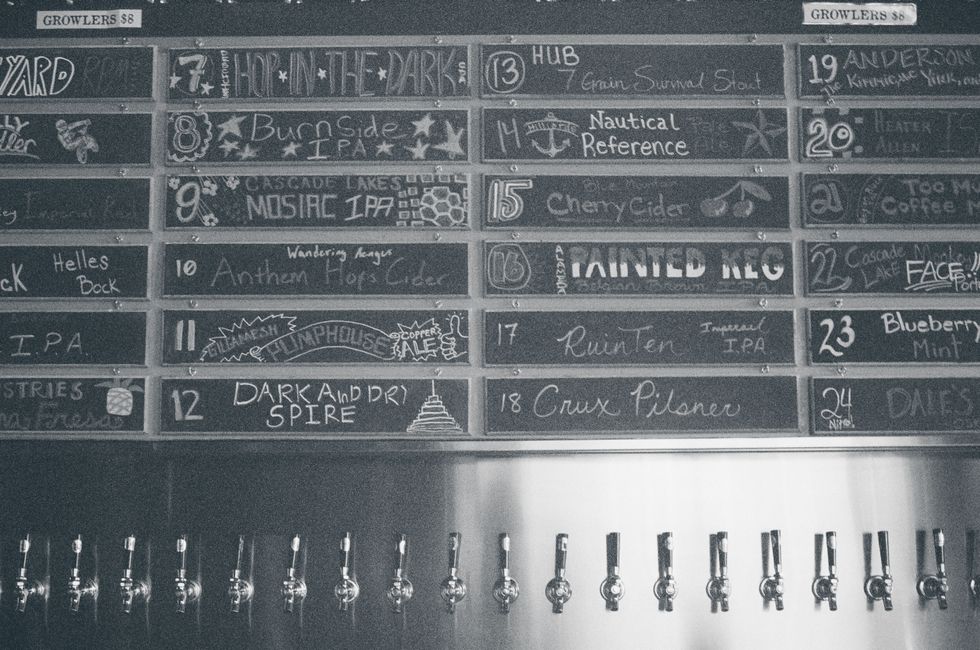 GROWLERS $8
GROWLERS $8
YARD
Helles
Bock
I.P.A.
7 HOP IN THE DARK
8 BurnSide
IPA
9 CASCADE LAKES
MOSIAC IPA
10 Wandering Aengus
Anthem Hops Cider
11 GILGAMESH PUMPHOUSE COPPER
ALE
12 DARK AND DRY
SPIRE
13 HUB
7 Grain Survival Stout
14 Nautical
Reference
15 Cherry Cider
16 PAINTED KEG
Belgian Brown IPA
17 RuinTen Imperial
IPA
18 Crux Pilsner
19 ANDERSON
The Kimmie, the Yink,
20 HEATER
ALLEN
21 TOO M
Coffee
22 Cascade
LAKE FACE
23 Blueberry
Mint
24 DALE'S
Nitro!